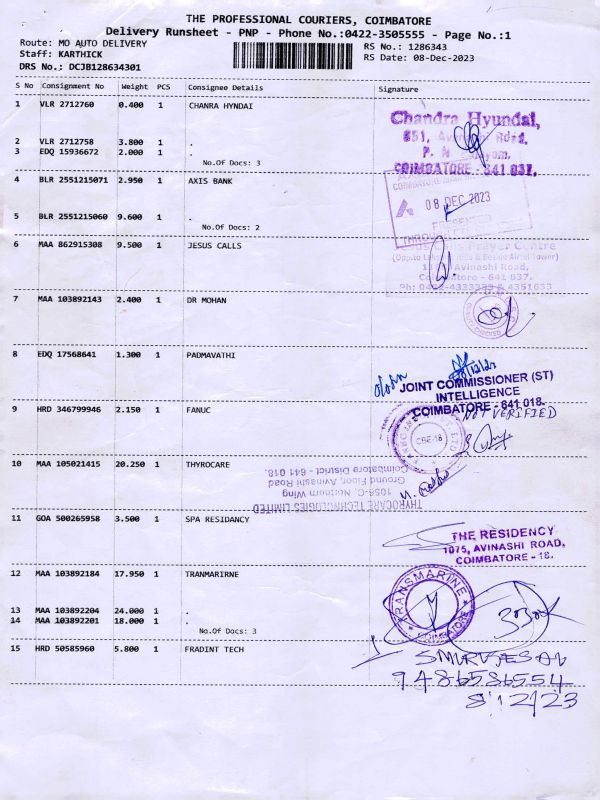 THE PROFESSIONAL COURIERS, COIMBATORE
Delivery Runsheet - PNP - Phone No.:0422-3505555 - Page No.:1
Route: MO AUTO DELIVERY
RS No.: 1286343
Staff: KARTHICK
RS Date: 08-Dec-2023
DRS No.: DCJB128634301
S No Consignment No Weight PCS Consignee Details Signature
1 VLR 2712760 0.400 1 CHANRA HYNDAI
Chandra Hyundai,
851, Avinashi Road,
COIMBATORE - 641 037.
2 VLR 2712758 3.800 1 .
3 EDQ 15936672 2.000 1 .
No.Of Docs: 3
4 BLR 2551215071 2.950 1 AXIS BANK
08 DEC 2023
5 BLR 2551215060 9.600 1 .
No.Of Docs: 2
6 MAA 862915308 9.500 1 JESUS CALLS
Prayer Centre
Avinashi Road,
Coimbatore - 641 037.
7 MAA 103892143 2.400 1 DR MOHAN
8 EDQ 17568641 1.300 1 PADMAVATHI
JOINT COMMISSIONER (ST)
INTELLIGENCE
COIMBATORE - 641 018.
9 HRD 346799946 2.150 1 FANUC
NOT VERIFIED
CBE-18
10 MAA 105021415 20.250 1 THYROCARE
THYROCARE TECHNOLOGIES LIMITED
1056-C, Northern Wing
Ground Floor, Avinashi Road
Coimbatore District - 641 018.
11 GOA 500265958 3.500 1 SPA RESIDANCY
THE RESIDENCY
1075, AVINASHI ROAD,
COIMBATORE - 18.
12 MAA 103892184 17.950 1 TRANMARIRNE
TRANSMARINE
COIMBATORE
13 MAA 103892204 24.000 1 .
14 MAA 103892201 18.000 1 .
No.Of Docs: 3
15 HRD 50585960 5.800 1 FRADINT TECH
9486586554
8/12/23